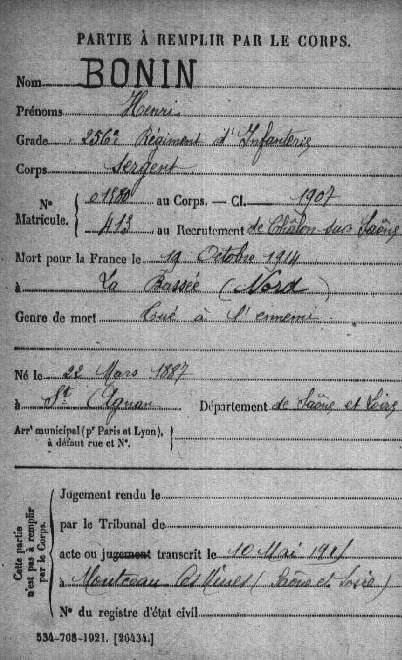 PARTIE À REMPLIR PAR LE CORPS.
Nom BONIN
Prénoms Henri
Grade 256e Régiment d'Infanterie
Corps sergent
Nº Matricule. { 01880 au Corps. — Cl. 1907
413 au Recrutement de Châlon-sur Saône
Mort pour la France le 19 Octobre 1914
à La Bassée (Nord)
Genre de mort tué à l'ennemi
Né le 22 Mars 1887
à St Agnan Département de Saône et Loire
Arrt municipal (pr Paris et Lyon), à défaut rue et Nº. }
Cette partie n'est pas à remplir par le Corps.
Jugement rendu le
par le Tribunal de
acte ou jugement transcrit le 10 Mai
à Montceau les Mines (Saône et Loire)
Nº du registre d'état civil
534-708-1921. [26434.]